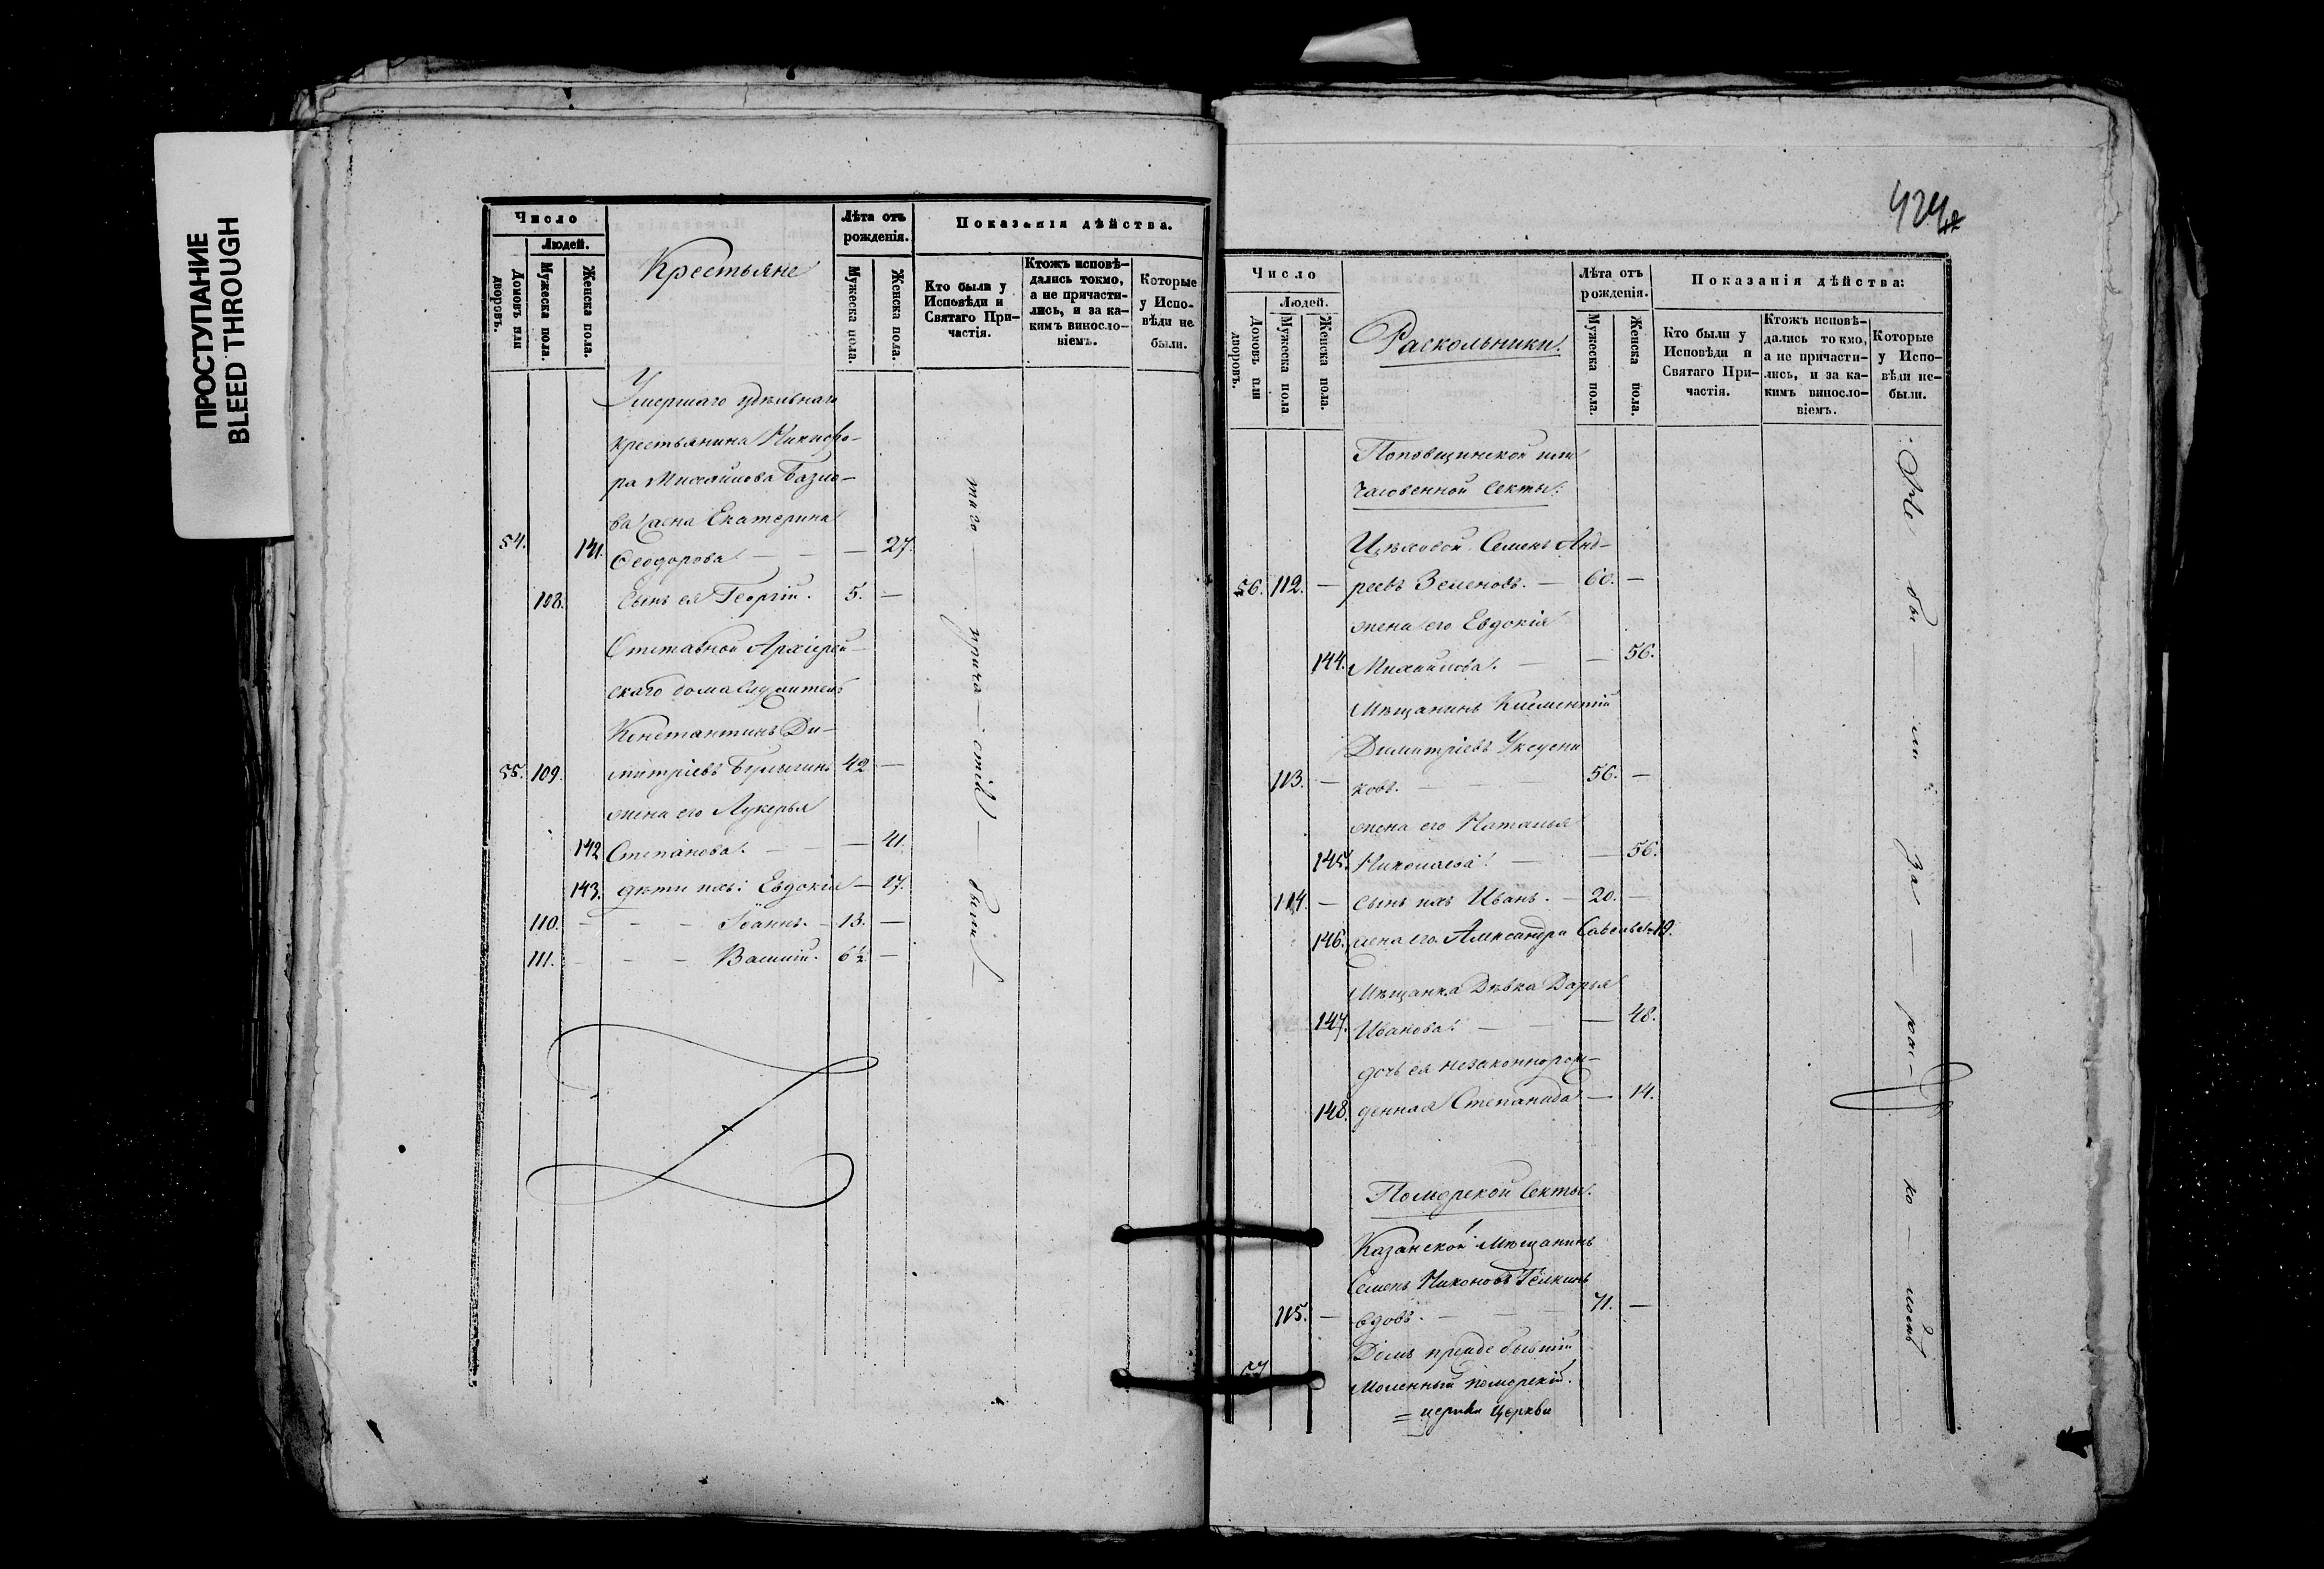 ПРОСТУПАНИЕ
BLEED THROUGH
Число
Людей.
Домовъ или дворовъ.
Мужеска пола.
Женска пола.
Крестьяне
Лѣта отъ рожденія.
Мужеска пола.
Женска пола.
Показанія дѣйства.
Кто были у Исповѣди и Святаго При-
частія.
Ктожъ исповѣ-
дались токмо,
а не причасти-
лись, и за ка-
кимъ виносло-
віемъ.
Которые
у Испо-
вѣди не
были.
Умершаго удѣльнаго
крестьянина Никифо-
ра Михайлова
жена Екатерина
54. 141. Ѳеодорова — — — 27.
108. Сынъ ея Георгій. 5. —
Отставной Архіерей-
скаго дома служитель
Константинъ Ди-
55. 109. митріевъ 42 —
жена его Лукерья
142 Степанова. — — — 41.
143. дѣти ихъ: Евдокія — 17.
110. — — — Іоаннъ. — 13. —
111. — — — Василій. 6½ —
того — прича — стія — были
424
Число
Людей.
Домовъ или дворовъ.
Мужеска пола
Женска пола.
Раскольники.
Лѣта отъ рожденія.
Мужеска пола.
Женска пола.
Показанія дѣйства:
Кто были у
Исповѣди и
Святаго При-
частія.
Ктожъ исповѣ-
дались токмо,
а не причасти-
лись, и за ка-
кимъ виносло-
віемъ.
Которые
у Испо-
вѣди не-
были.
Поповщинской или
часовенной Секты:
Цѣховой Семенъ Анд-
56. 112. — реевъ Земеновъ. — 60. —
жена его Евдокія
144. Михайлова. — — 56.
Мѣщанинъ Климентій
Димитріевъ
113. — ковъ. — — 56. —
жена его Наталья
145. Николаева. — — 56.
114. — сынъ ихъ Иванъ. — 20. —
146. жена его Александра Савельева 19.
Мѣщанка Дѣвка Дарья
147. Иванова. — — — 48.
дочь ея незаконнорож-
148. денная Степанида — 14.
Поморской Секты.
Казанской Мѣщанинъ
Семенъ Никоновъ
115. — вдовъ. — — — 71. —
57 Домъ прежде бывшій
Моленный поморской
церкви
Не бы — ли за — рас — ко — ломъ